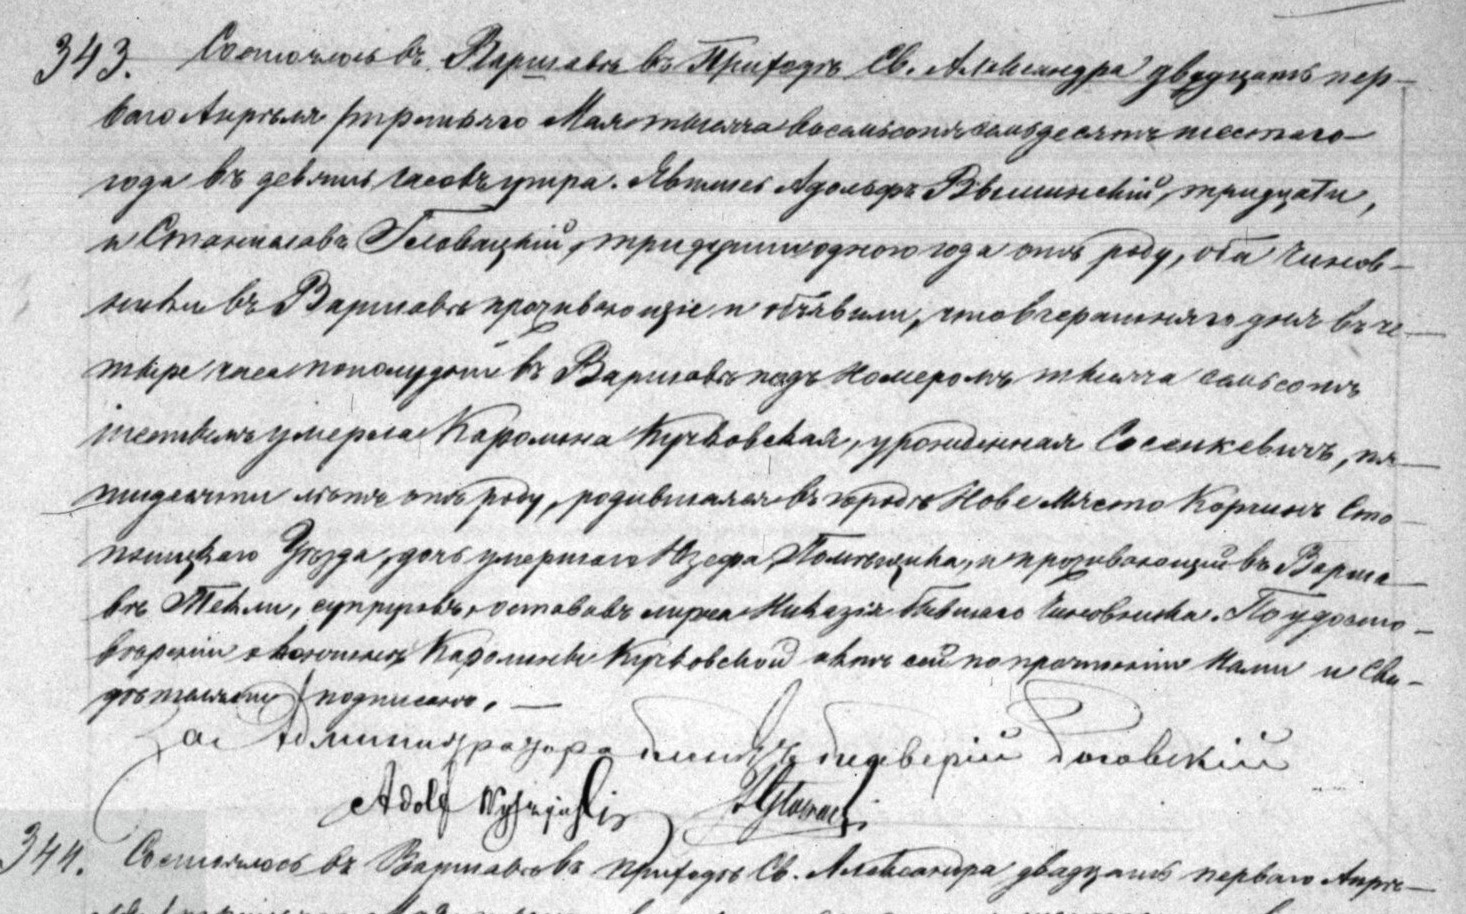 343. Состоялось въ Варшавѣ въ Приходѣ Св. Александра двадцать пер-
ваго Апрѣля /третьяго Мая тысяча восемьсотъ семьдесятъ шестаго
года въ девять часовъ утра. Явились Адольфъ Вышинскій, тридцати,
и Станиславъ Гловацкій, тридцати одного года отъ роду, оба Чинов-
ники въ Варшавѣ проживающіе и объявили, что вчерашняго дня въ че-
тыре часа пополудни въ Варшавѣ подъ Номеромъ тысяча семьсотъ
шестымъ умерла Каролина Кучковская, урожденная Сосенкевичъ, пя-
тидесяти лѣтъ отъ роду, родившаяся въ городѣ Нове Място Корчинъ Сто-
пницкаго Уѣзда, дочь умершаго Юзефа Помѣщика, и проживающей въ Варша-
вѣ Текли, супруговъ, оставивъ мужа Никазія бывшаго Чиновника. По удосто-
вѣреніи о кончинѣ Каролины Кучковской актъ сей по прочтеніи Нами и Сви-
дѣтелями подписанъ. —
За Администратора Роговскій
Adolf Wyszyński Głowacki
344. Состоялось въ Варшавѣ въ приходѣ Св. Александра двадцать перваго Апрѣ-